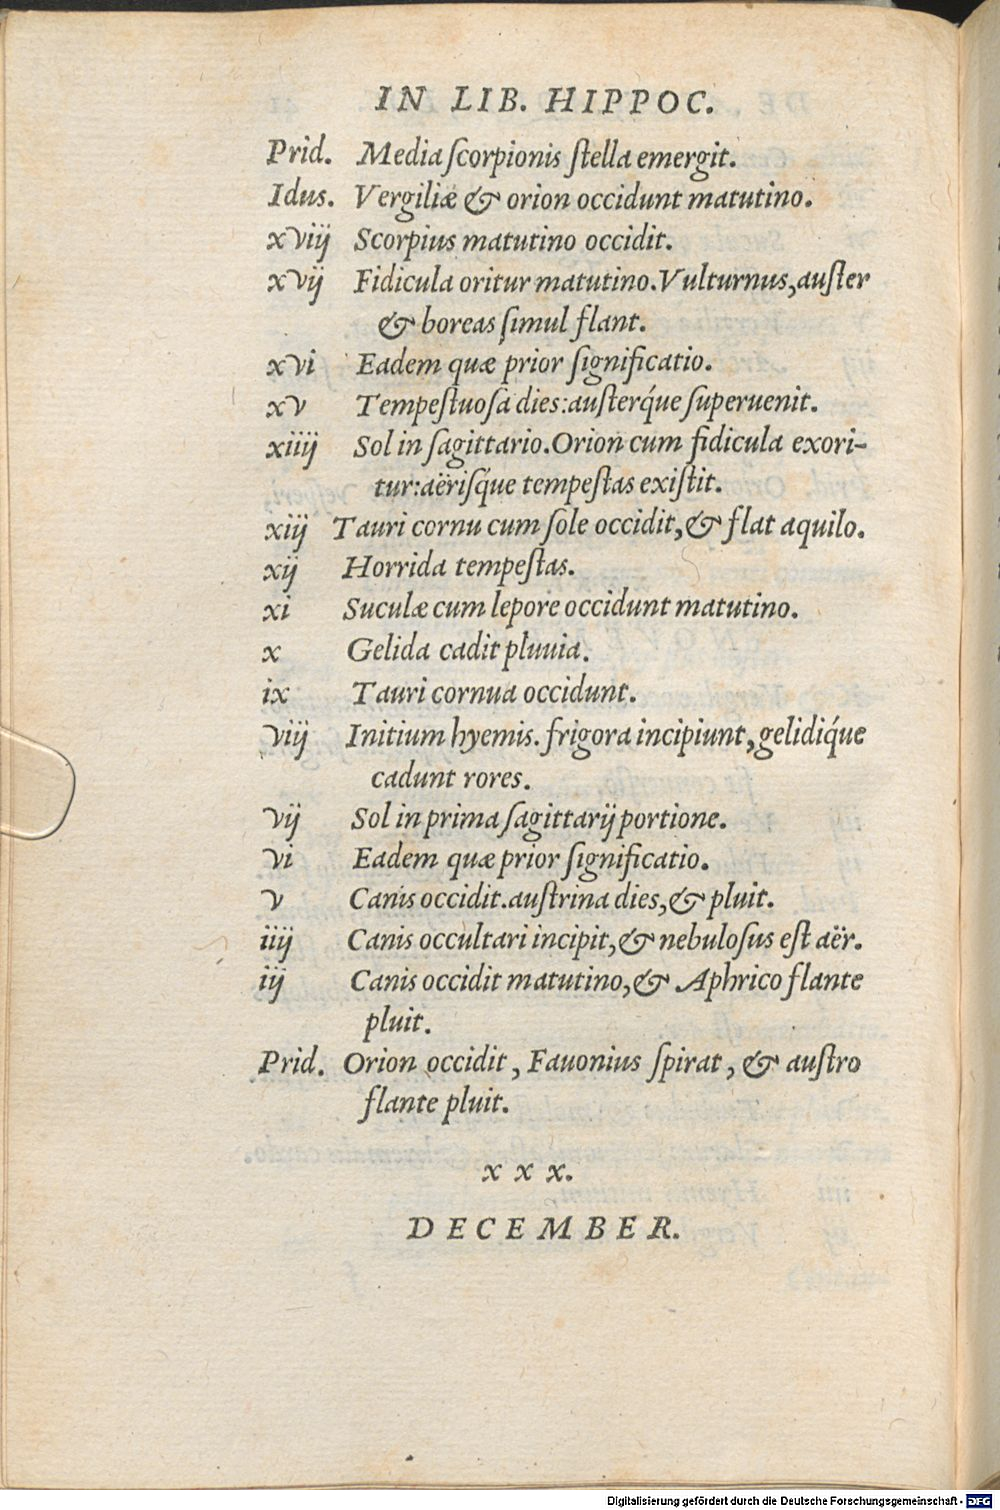 IN LIB. HIPPOC.
Prid. Media scorpionis stella emergit.
Idus. Vergiliæ & orion occidunt matutino.
xviij Scorpius matutino occidit.
xvij Fidicula oritur matutino. Vulturnus, auster
& boreas simul flant.
xvi Eadem quæ prior significatio.
xv Tempestuosa dies: austerq́ue superuenit.
xiiij Sol in sagittario. Orion cum fidicula exori-
tur: aërisq́ue tempestas existit.
xiij Tauri cornu cum sole occidit, & flat aquilo.
xij Horrida tempestas.
xi Suculæ cum lepore occidunt matutino.
x Gelida cadit pluuia.
ix Tauri cornua occidunt.
viij Initium hyemis. frigora incipiunt, gelidiq́ue
cadunt rores.
vij Sol in prima sagittarij portione.
vi Eadem quæ prior significatio.
v Canis occidit. austrina dies, & pluit.
iiij Canis occultari incipit, & nebulosus est aër.
iij Canis occidit matutino, & Aphrico flante
pluit.
Prid. Orion occidit, Fauonius spirat, & austro
flante pluit.
x x x.
DECEMBER.
Digitalisierung gefördert durch die Deutsche Forschungsgemeinschaft - DFG